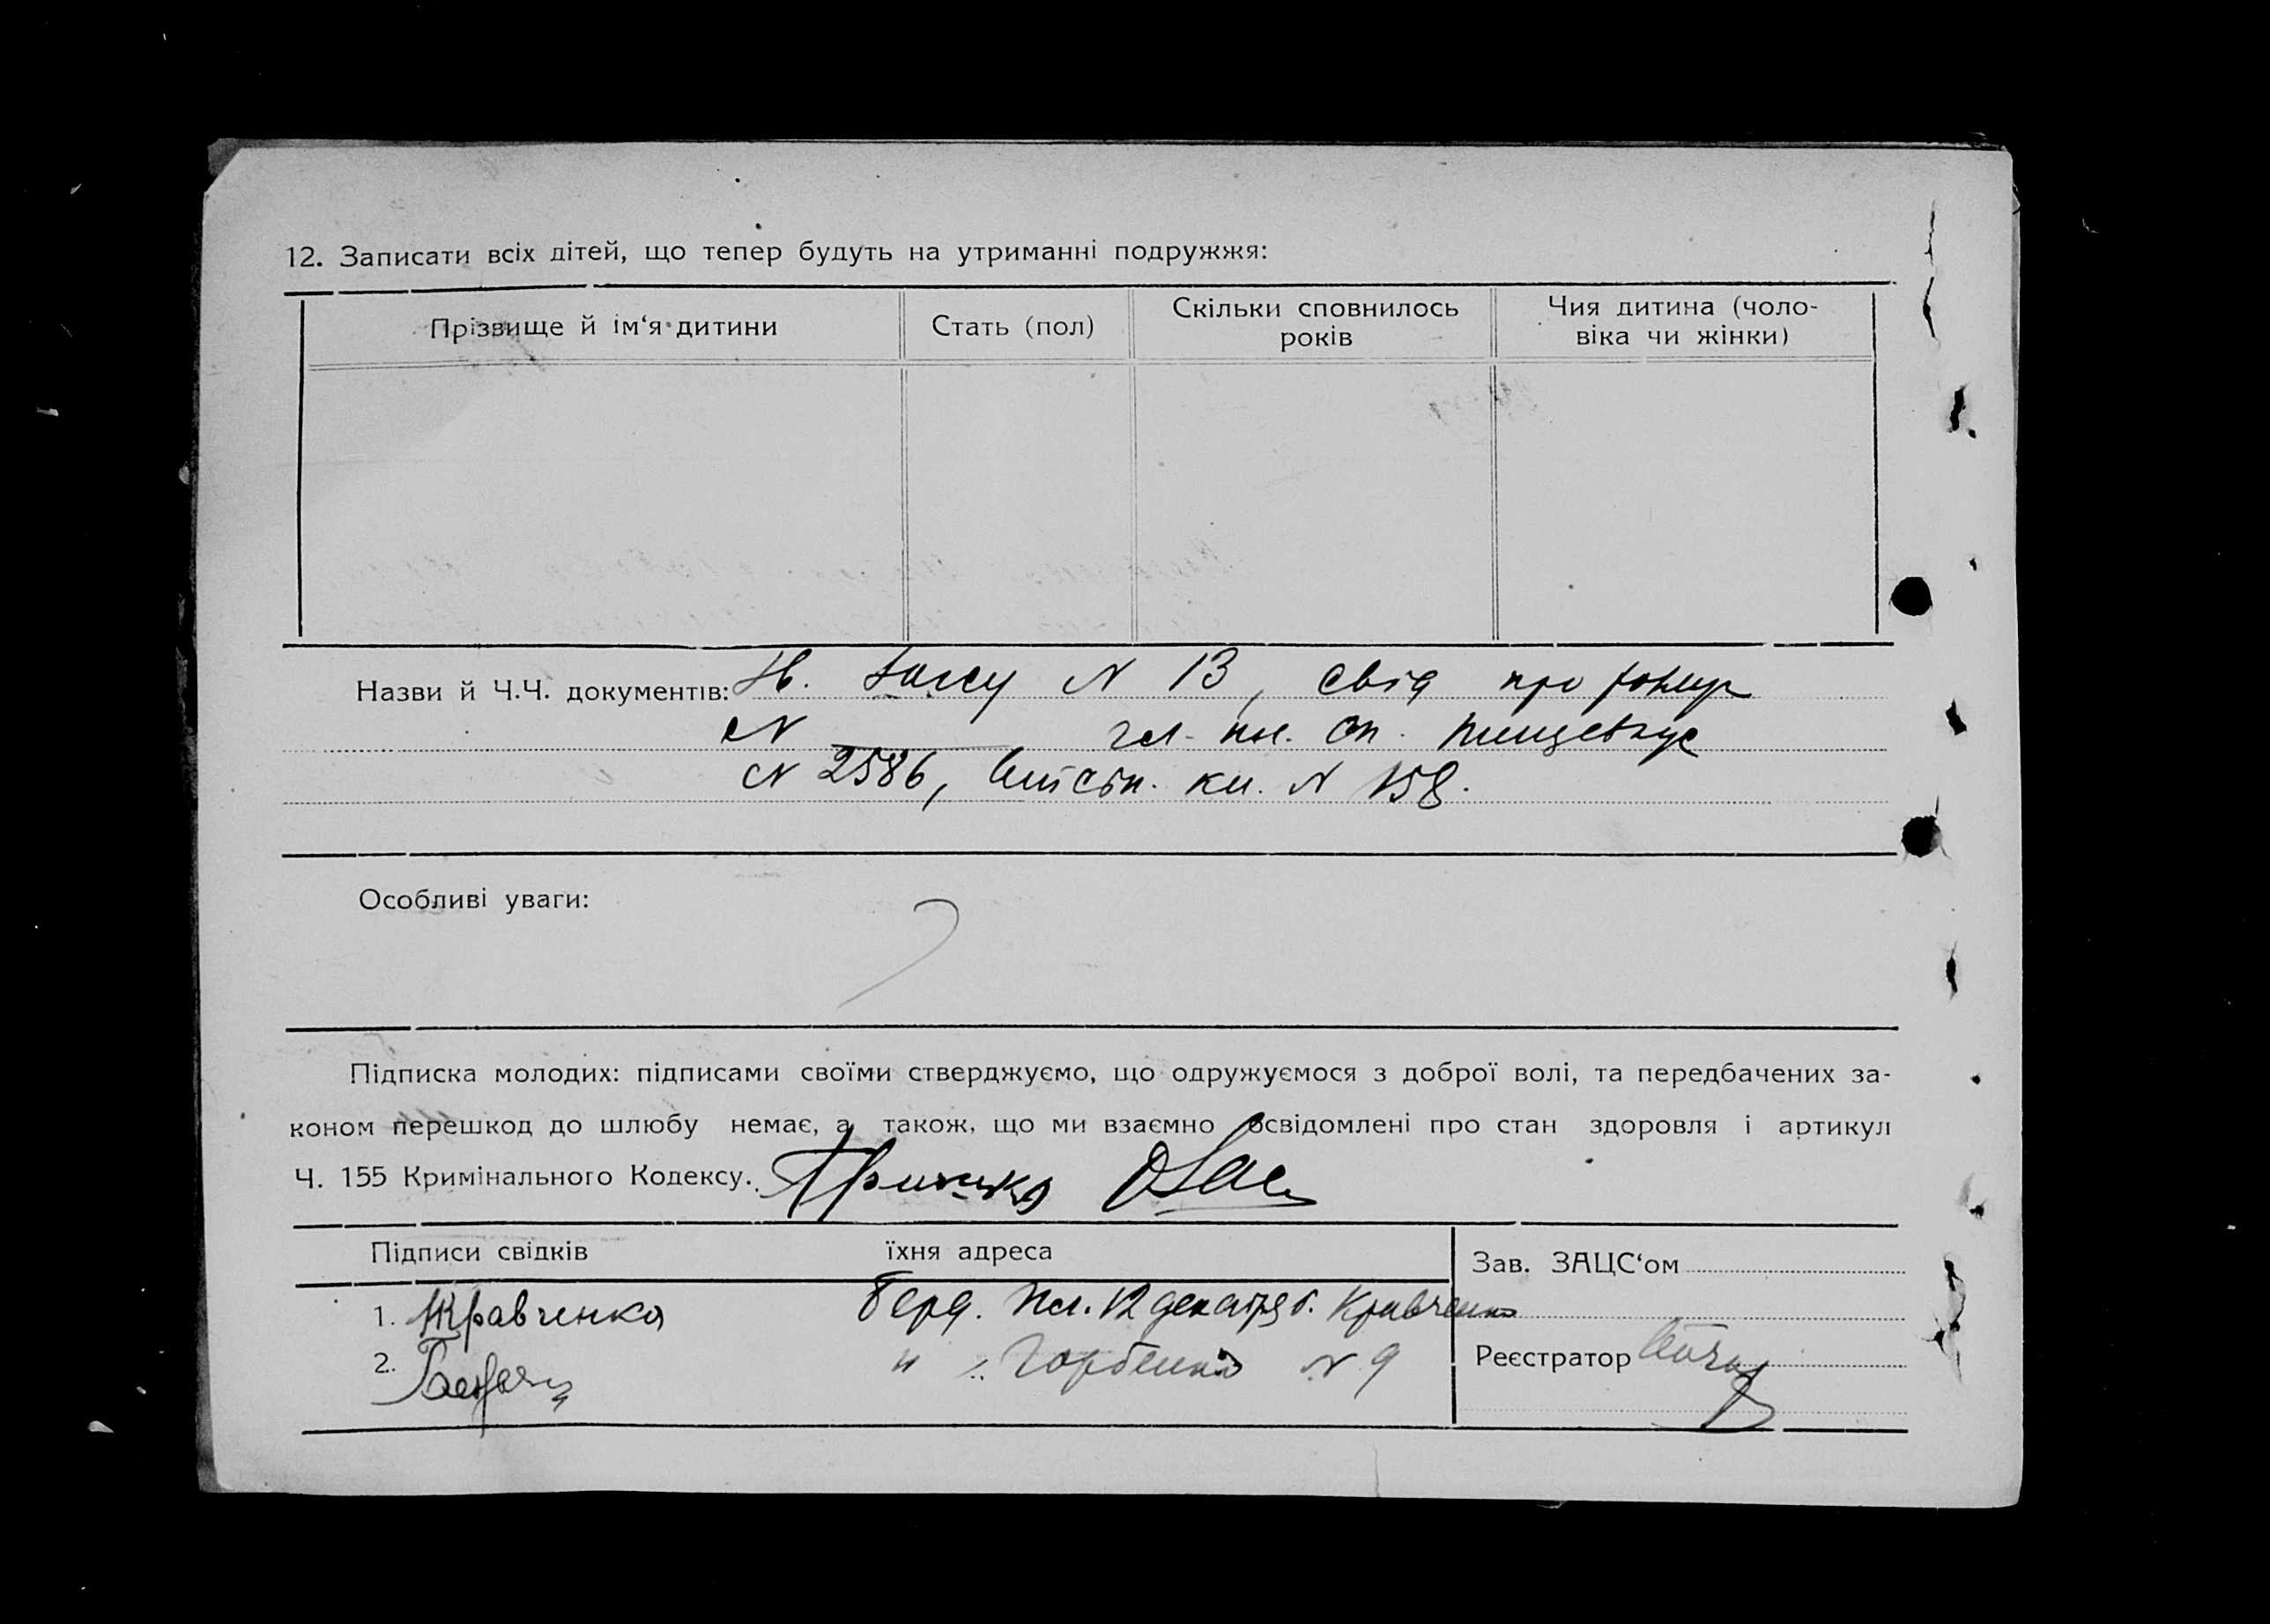 12. Записати всіх дітей, що тепер будуть на утриманні подружжя:
Прізвище й ім‘я дитини
Стать (пол)
Скільки сповнилось
років
Чия дитина (чоло-
віка чи жінки)
Назви й Ч.Ч. документів: N 13, свід про
N
N 2586, кн. N 158.
Особливі уваги:
Підписка молодих: підписами своїми стверджуємо, що одружуємося з доброї волі, та передбачених за-
коном перешкод до шлюбу немає, а також, що ми взаємно освідомлені про стан здоровля і артикул
Ч. 155 Кримінального Кодексу.
Підписи свідків
їхня адреса
Зав. ЗАЦС‘ом
1. Кравченко Берд. пл. 12 декабря б. Кравченко
2. " Горбенко N 9
Реєстратор